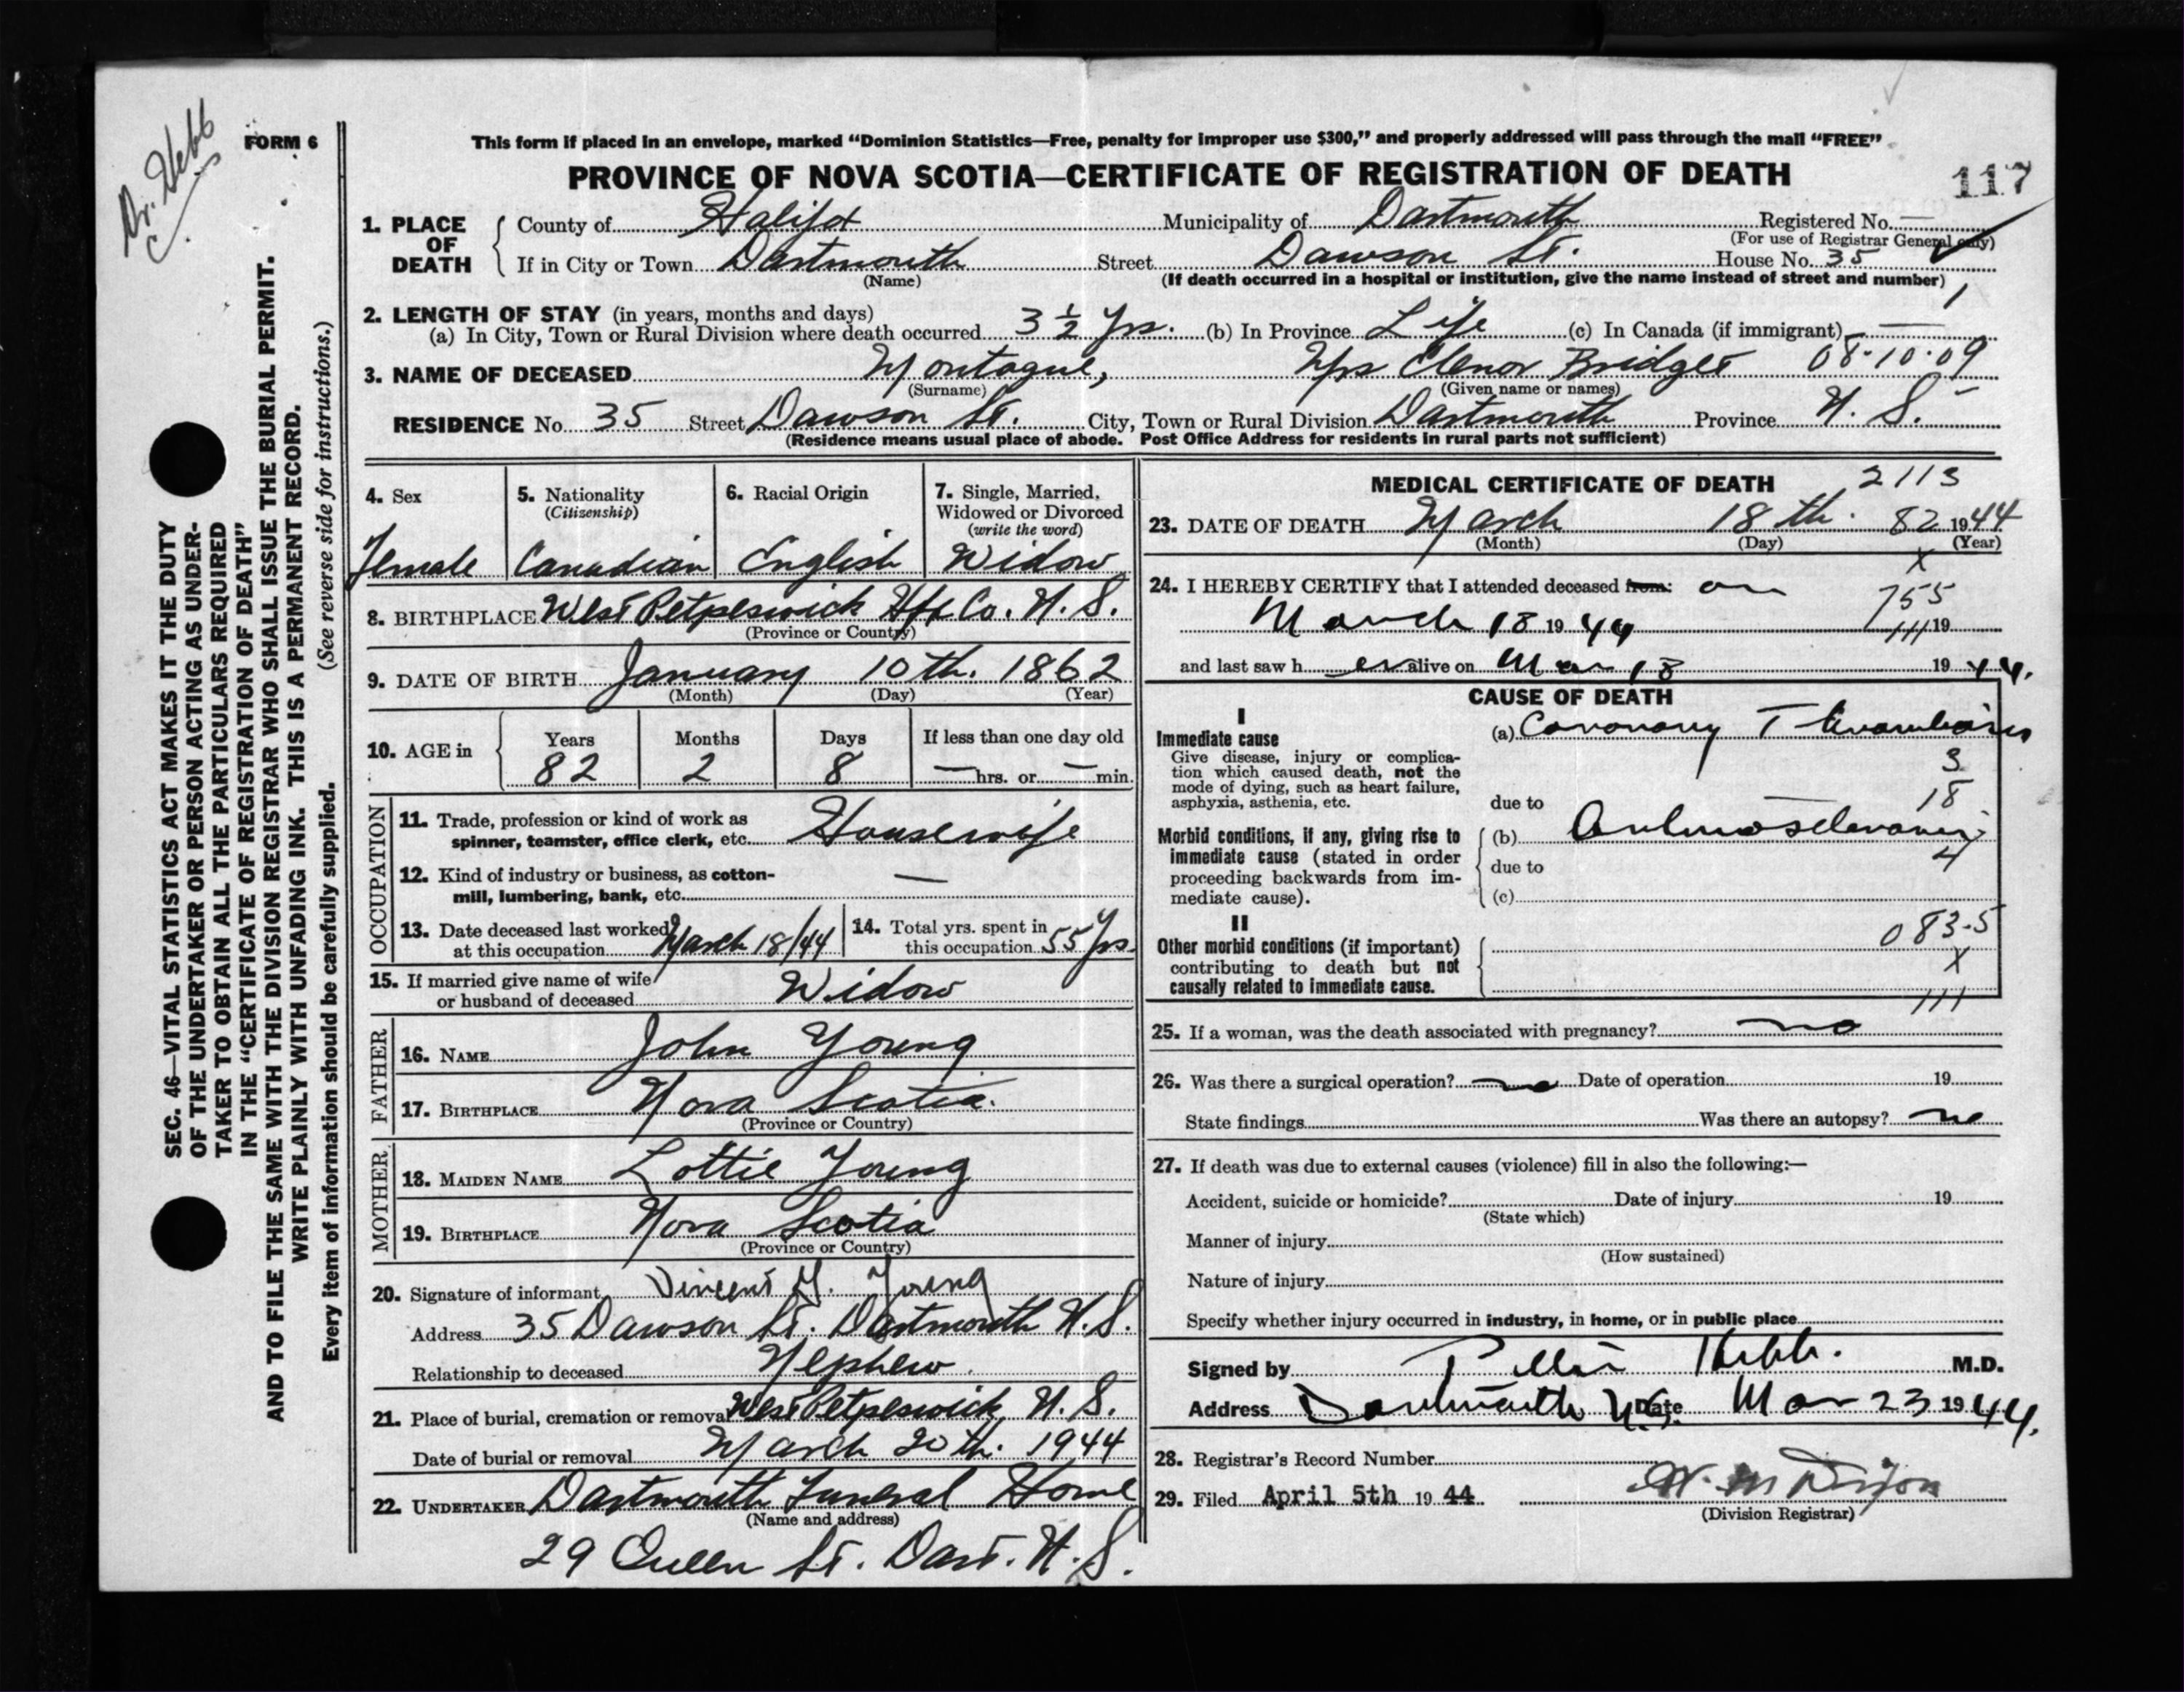 Dr. Hebb
FORM 6
This form if placed in an envelope, marked “Dominion Statistics—Free, penalty for improper use $300,” and properly addressed will pass through the mail “FREE”
PROVINCE OF NOVA SCOTIA—CERTIFICATE OF REGISTRATION OF DEATH
117
1. PLACE OF DEATH County of Halifax Municipality of Dartmouth Registered No. —
(For use of Registrar General only)
If in City or Town Dartmouth Street Dawson St. House No. 35
(Name) (If death occurred in a hospital or institution, give the name instead of street and number)
1
2. LENGTH OF STAY (in years, months and days)
(a) In City, Town or Rural Division where death occurred 3 1/2 Yrs. (b) In Province Life (c) In Canada (if immigrant) —
3. NAME OF DECEASED Montague, Mrs Elenor Bridget 08-10-09
(Surname) (Given name or names)
RESIDENCE No. 35 Street Dawson St. City, Town or Rural Division Dartmouth Province N. S.
(Residence means usual place of abode. Post Office Address for residents in rural parts not sufficient)
4. Sex 5. Nationality 6. Racial Origin 7. Single, Married,
(Citizenship) Widowed or Divorced
(write the word)
Female Canadian English Widow
8. BIRTHPLACE West Petpeswick Hfx Co. N. S.
(Province or Country)
9. DATE OF BIRTH January 10th. 1862
(Month) (Day) (Year)
10. AGE in Years Months Days If less than one day old
82 2 8 — hrs. or — min.
OCCUPATION
11. Trade, profession or kind of work as
spinner, teamster, office clerk, etc. Housewife
12. Kind of industry or business, as cotton-
mill, lumbering, bank, etc. —
13. Date deceased last worked
at this occupation March 18/44
14. Total yrs. spent in
this occupation 55 Yrs.
15. If married give name of wife
or husband of deceased Widow
FATHER
16. NAME John Young
17. BIRTHPLACE Nova Scotia.
(Province or Country)
MOTHER
18. MAIDEN NAME Lottie Young
19. BIRTHPLACE Nova Scotia
(Province or Country)
20. Signature of informant Vincent Y. Young
Address 35 Dawson St. Dartmouth N. S.
Relationship to deceased Nephew.
21. Place of burial, cremation or removal West Petpeswick, N. S.
Date of burial or removal March 20th. 1944
22. UNDERTAKER Dartmouth Funeral Home
(Name and address)
29 Queen St. Dart. N. S.
MEDICAL CERTIFICATE OF DEATH 2113
23. DATE OF DEATH March 18th. 82 1944
(Month) (Day) (Year)
X
24. I HEREBY CERTIFY that I attended deceased from: on
755
March 18 1944 111 19
and last saw h er alive on Mar 18 1944.
CAUSE OF DEATH
I
Immediate cause
Give disease, injury or complica-
tion which caused death, not the
mode of dying, such as heart failure,
asphyxia, asthenia, etc.
(a) Coronary Thrombosis
3
due to 18
Morbid conditions, if any, giving rise to
immediate cause (stated in order
proceeding backwards from im-
mediate cause).
(b) Arteriosclerosis
4
due to
(c)
II
Other morbid conditions (if important)
contributing to death but not
causally related to immediate cause.
083-5
X
111
25. If a woman, was the death associated with pregnancy? no
26. Was there a surgical operation? no Date of operation 19
State findings Was there an autopsy? no
27. If death was due to external causes (violence) fill in also the following:—
Accident, suicide or homicide? Date of injury 19
(State which)
Manner of injury
(How sustained)
Nature of injury
Specify whether injury occurred in industry, in home, or in public place
Signed by Hebb. M.D.
Address Dartmouth N.S. Date Mar 23 1944.
28. Registrar's Record Number
29. Filed April 5th 1944
(Division Registrar)
SEC. 46—VITAL STATISTICS ACT MAKES IT THE DUTY
OF THE UNDERTAKER OR PERSON ACTING AS UNDER-
TAKER TO OBTAIN ALL THE PARTICULARS REQUIRED
IN THE “CERTIFICATE OF REGISTRATION OF DEATH”
AND TO FILE THE SAME WITH THE DIVISION REGISTRAR WHO SHALL ISSUE THE BURIAL PERMIT.
WRITE PLAINLY WITH UNFADING INK. THIS IS A PERMANENT RECORD.
Every item of information should be carefully supplied. (See reverse side for instructions.)